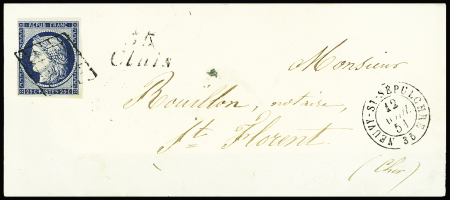 REPUB. FRANC.
25
35
Cluis
Monsieur
Rouillon, notaire,
St. Florent
(Cher)
NEUVY-ST-SÉPULCHRE
12
51